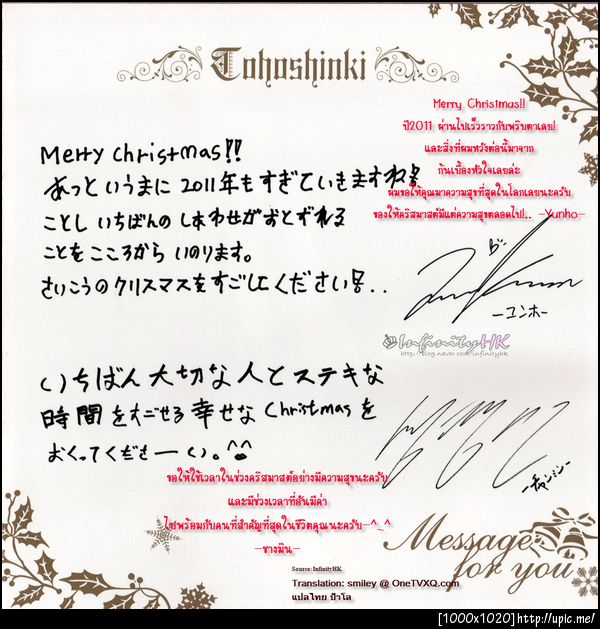 Tohoshinki
Merry Christmas!!
ปี2011 ผ่านไปเร็วราวกับพริบตาเลย!
และสิ่งที่ผมหวังต่อนี้มาจาก
ก้นเบื้องหัวใจเลยล่ะ
ผมขอให้คุณมาความสุขที่สุดในโลกเลยนะครับ
ขอให้คริสมาสต์มีแต่ความสุขตลอดไป!.. -Yunho-
Merry Christmas!!
あっというまに 2011年もすぎていきますね
ことし いちばんの しあわせが おとずれる
ことを こころから いのります。
さいこうの クリスマスを すごしてください!!..
-ユンホ-
InfinityHK
http://blog.naver.com/infinityhk
いちばん 大切な 人と ステキな
時間を すごせる 幸せな Christmasを
おくってくださーい。^^
-チャンミン-
ขอให้ใช้เวลาในช่วงคริสมาสต์อย่างมีความสุขนะครับ
และมีช่วงเวลาที่อันมีค่า
ไปพร้อมกับคนที่สำคัญที่สุดในชีวิตคุณนะครับ-^_^
-ชางมิน-
Message
for you
Source: InfinityHK
Translation: smiley @ OneTVXQ.com
แปลไทย ป้าโล
[1000x1020]http://upic.me/